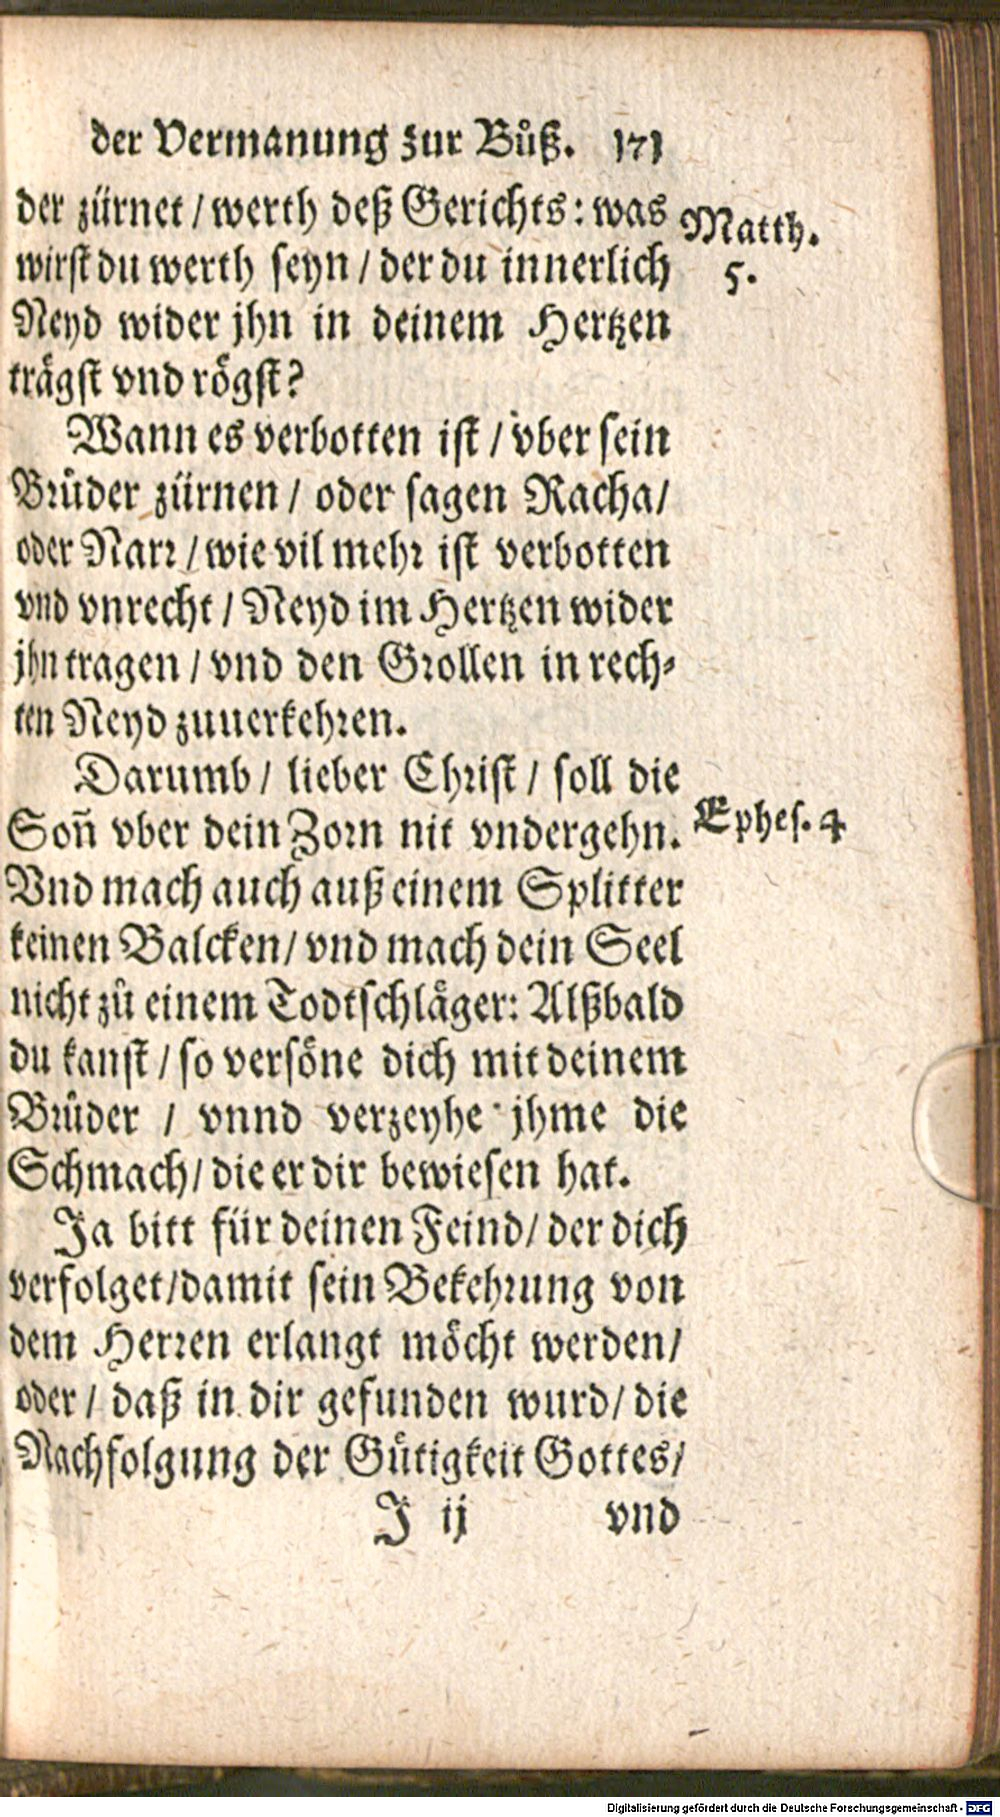 der Vermanung zur Bůß. 171
der zürnet / werth deß Gerichts: was
Matth.
5.
wirst du werth seyn / der du innerlich
Neyd wider jhn in deinem Hertzen
trägst vnd rögst?
Wann es verbotten ist / vber sein
Brůder zürnen / oder sagen Racha/
oder Narr / wie vil mehr ist verbotten
vnd vnrecht / Neyd im Hertzen wider
jhn tragen / vnd den Grollen in rech⸗
ten Neyd zuuerkehren.
Darumb / lieber Christ / soll die
Soñ vber dein Zorn nit vndergehn.
Ephes. 4
Vnd mach auch auß einem Splitter
keinen Balcken/ vnd mach dein Seel
nicht zů einem Todtschläger: Alßbald
du kanst / so versöne dich mit deinem
Brůder / vnnd verzeyhe jhme die
Schmach/ die er dir bewiesen hat.
Ja bitt für deinen Feind/ der dich
verfolget/damit sein Bekehrung von
dem Herren erlangt möcht werden/
oder / daß in dir gefunden wurd/ die
Nachfolgung der Gütigkeit Gottes/
J ij vnd
Digitalisierung gefördert durch die Deutsche Forschungsgemeinschaft - DFG